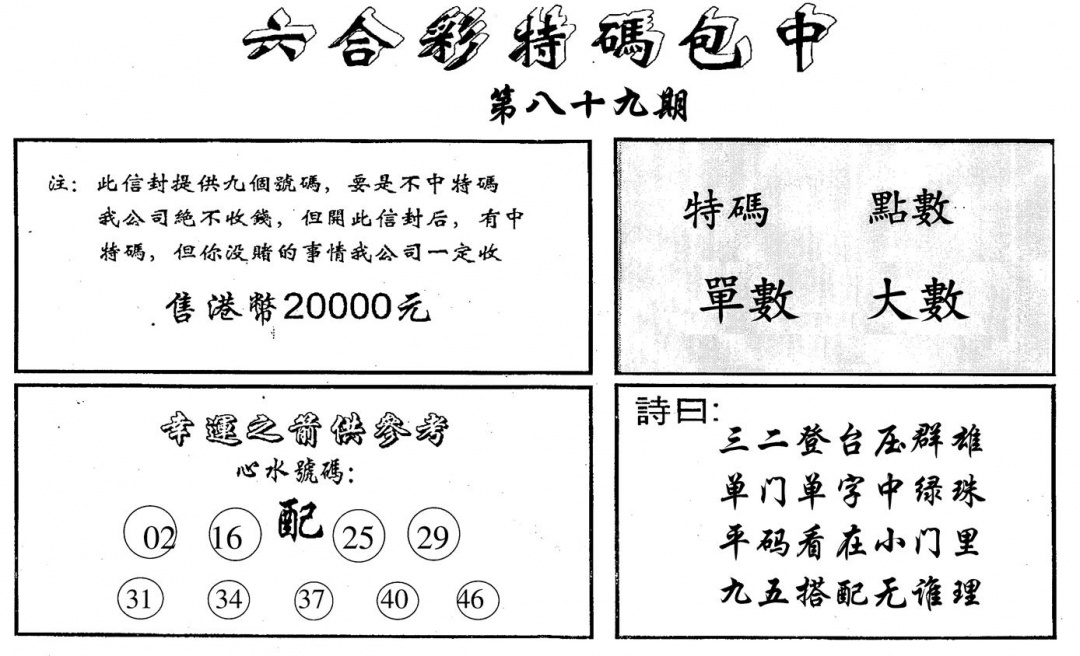 六合彩特碼包中
第八十九期
注：此信封提供九個號碼，要是不中特碼
我公司絕不收錢，但開此信封后，有中
特碼，但你没賭的事情我公司一定收
售港幣20000元
特碼 點數
單數 大數
幸運之箭供參考
心水號碼：
02 16 配 25 29
31 34 37 40 46
詩曰：
三二登台压群雄
单门单字中绿珠
平码看在小门里
九五搭配无谁理